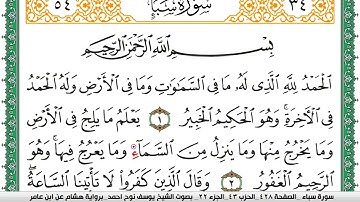 ٥٤ سُورَةُ سَبَإٍ ٣٤
بِسْمِ اللَّهِ الرَّحْمَٰنِ الرَّحِيمِ
الْحَمْدُ لِلَّهِ الَّذِي لَهُ مَا فِي السَّمَاوَاتِ وَمَا فِي الْأَرْضِ وَلَهُ الْحَمْدُ
فِي الْآخِرَةِ وَهُوَ الْحَكِيمُ الْخَبِيرُ ١ يَعْلَمُ مَا يَلِجُ فِي الْأَرْضِ
وَمَا يَخْرُجُ مِنْهَا وَمَا يَنزِلُ مِنَ السَّمَاءِ وَمَا يَعْرُجُ فِيهَا وَهُوَ
الرَّحِيمُ الْغَفُورُ ٢ وَقَالَ الَّذِينَ كَفَرُوا لَا تَأْتِينَا السَّاعَةُ
سورة سباء الصفحة ٤٢٨ الحزب ٤٣ الجزء ٢٢ بصوت الشيخ يوسف نوح احمد برواية هشام عن ابن عامر